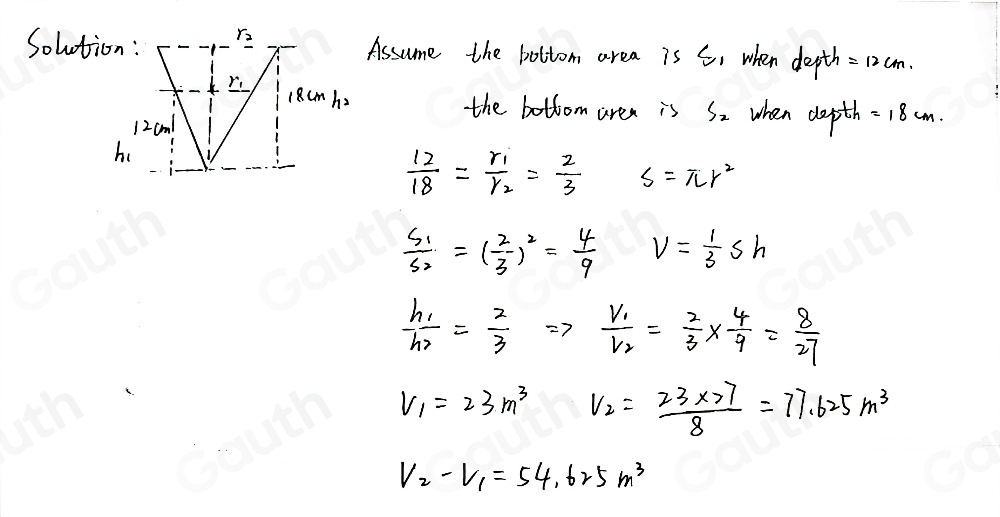 Solution:
r₂
r₁
18cm h₂
12cm
h₁
Assume the bottom area is S₁ when depth = 12 cm.
the bottom area is S₂ when depth = 18 cm.
12/18 = r₁/r₂ = 2/3 S = πr²
S₁/S₂ = (2/3)² = 4/9 V = 1/3 Sh
h₁/h₂ = 2/3 => V₁/V₂ = 2/3 × 4/9 = 8/27
V₁ = 23m³ V₂ = 23×27/8 = 77.625 m³
V₂ - V₁ = 54.625 m³
Gauth